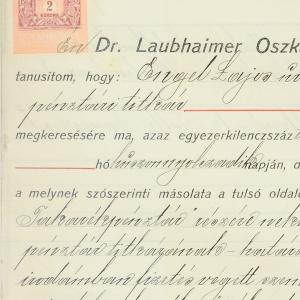 2
KORONA
Én Dr. Laubhaimer Oszk
tanusítom, hogy: Engel Lajos ú
pénztári titkár
megkeresésére ma, azaz egyezerkilenczszáz
hó huszonnyolczadik napján, d
a melynek szószerinti másolata a tulsó oldal
Takarékpénztár részére
pénztár titkárának - határ
irodámban fizetés végett